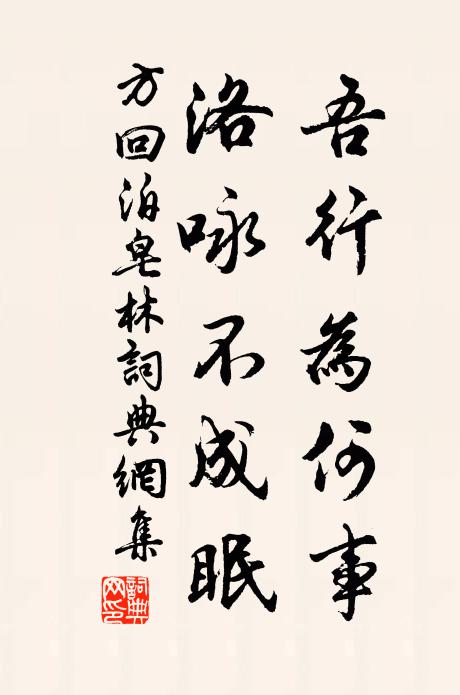 吾行為何事
洛咏不成眠
方回泊皂林詞典網集
詞典网印